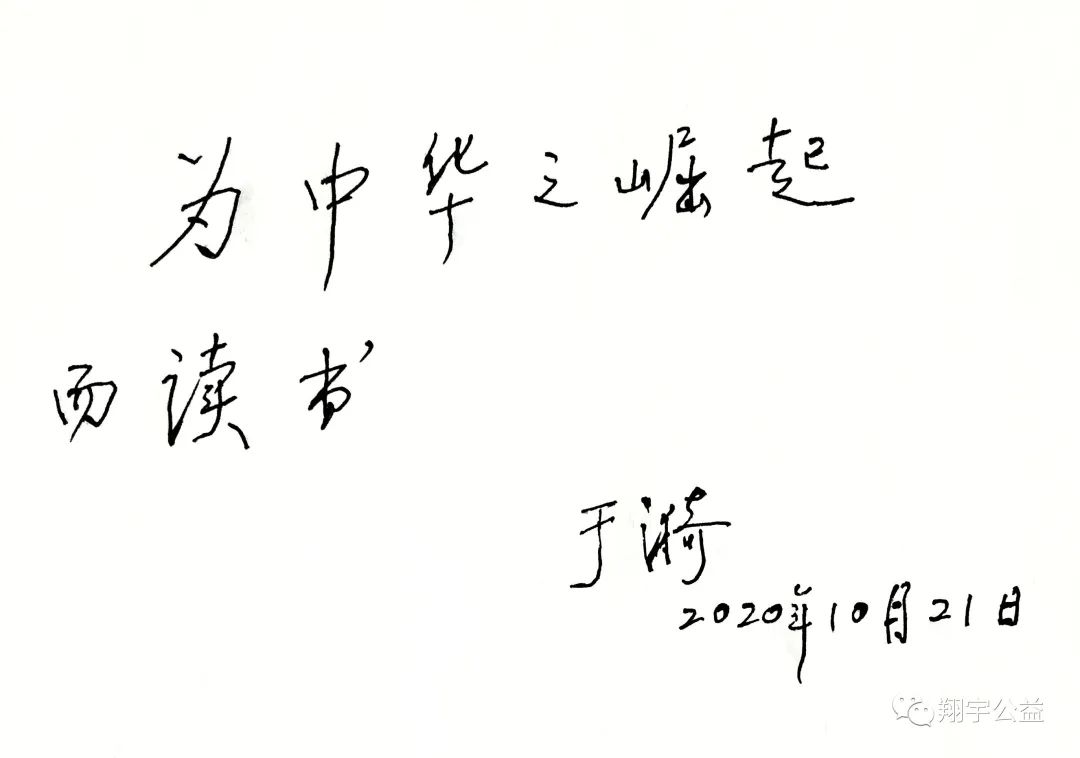 为中华之崛起
而读书
于漪
2020年10月21日
翔宇公益